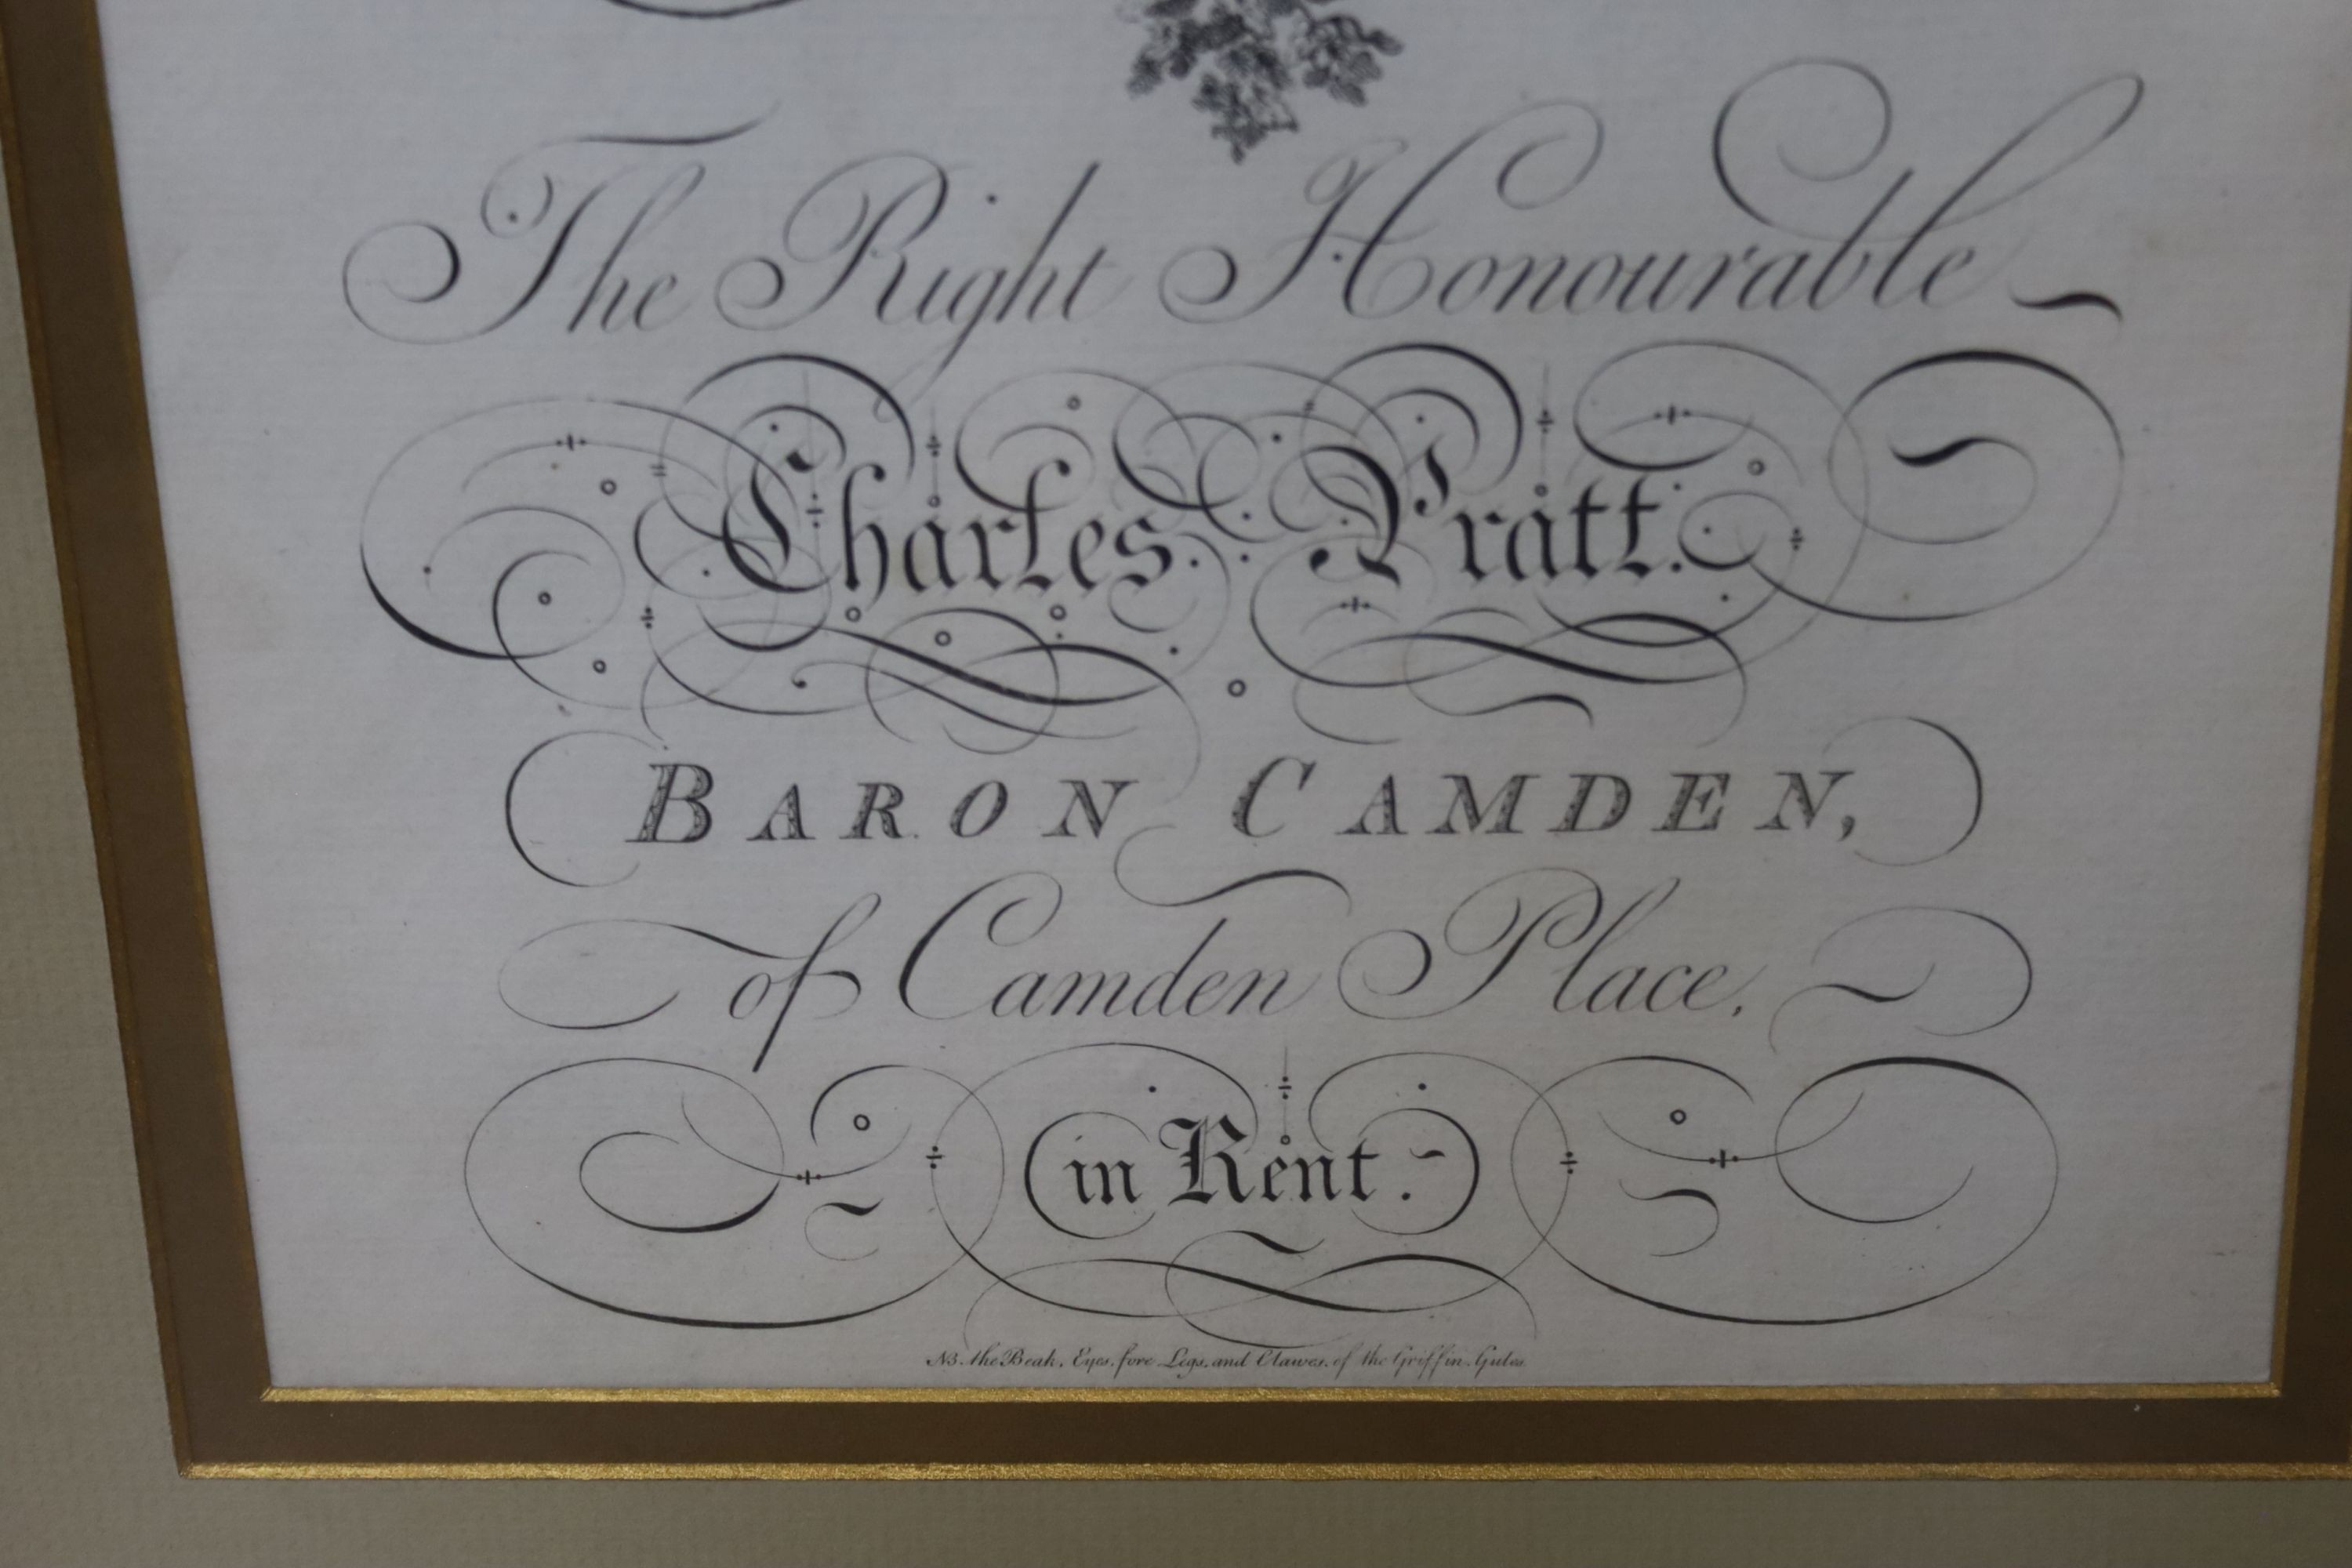 The Right Honourable
Charles Pratt.
BARON CAMDEN,
of Camden Place,
in Kent.
NB. the Beak, Eyes, fore Legs, and Clawes, of the Griffin Gules